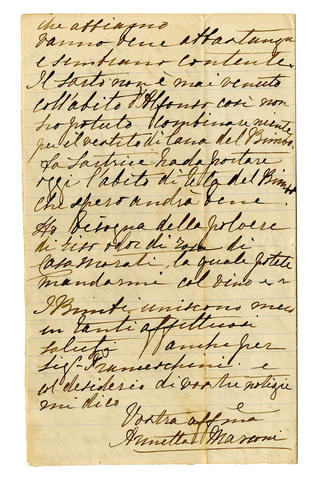 che abbiamo
vanno bene abbastanza
e sembrano contente.
Il sarto non è mai venuto
coll'abito d'Alfonso così non
ho potuto combinare niente
per il vestito di lana del Bimbo.
La Sartrice ha da portare
oggi l'abito di tela del Bimbo
che spero andrà bene.
Ho bisogna della polvere
di riso odor di rosa di
Casa Morati, la quale potete
mandarmi col vino e
I Bimbi uniscono meco
in tanti affettuosi
saluti anche per
Sigr Franceschini e
col desiderio di vostre notizie
mi dico
Vostra affma
Annetta Marconi